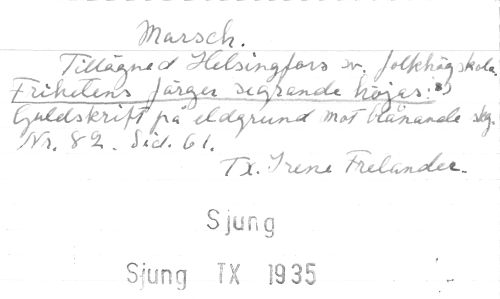 Marsch.
Tillägned Helsingfors sv. folkhögskola.
Frihetens färger segrande höjas:,:
Guldskrift på eldgrund mot blånande sky.
Nr. 82. Sid. 61.
Tx. Irene Frelander.
Sjung
Sjung TX 1935